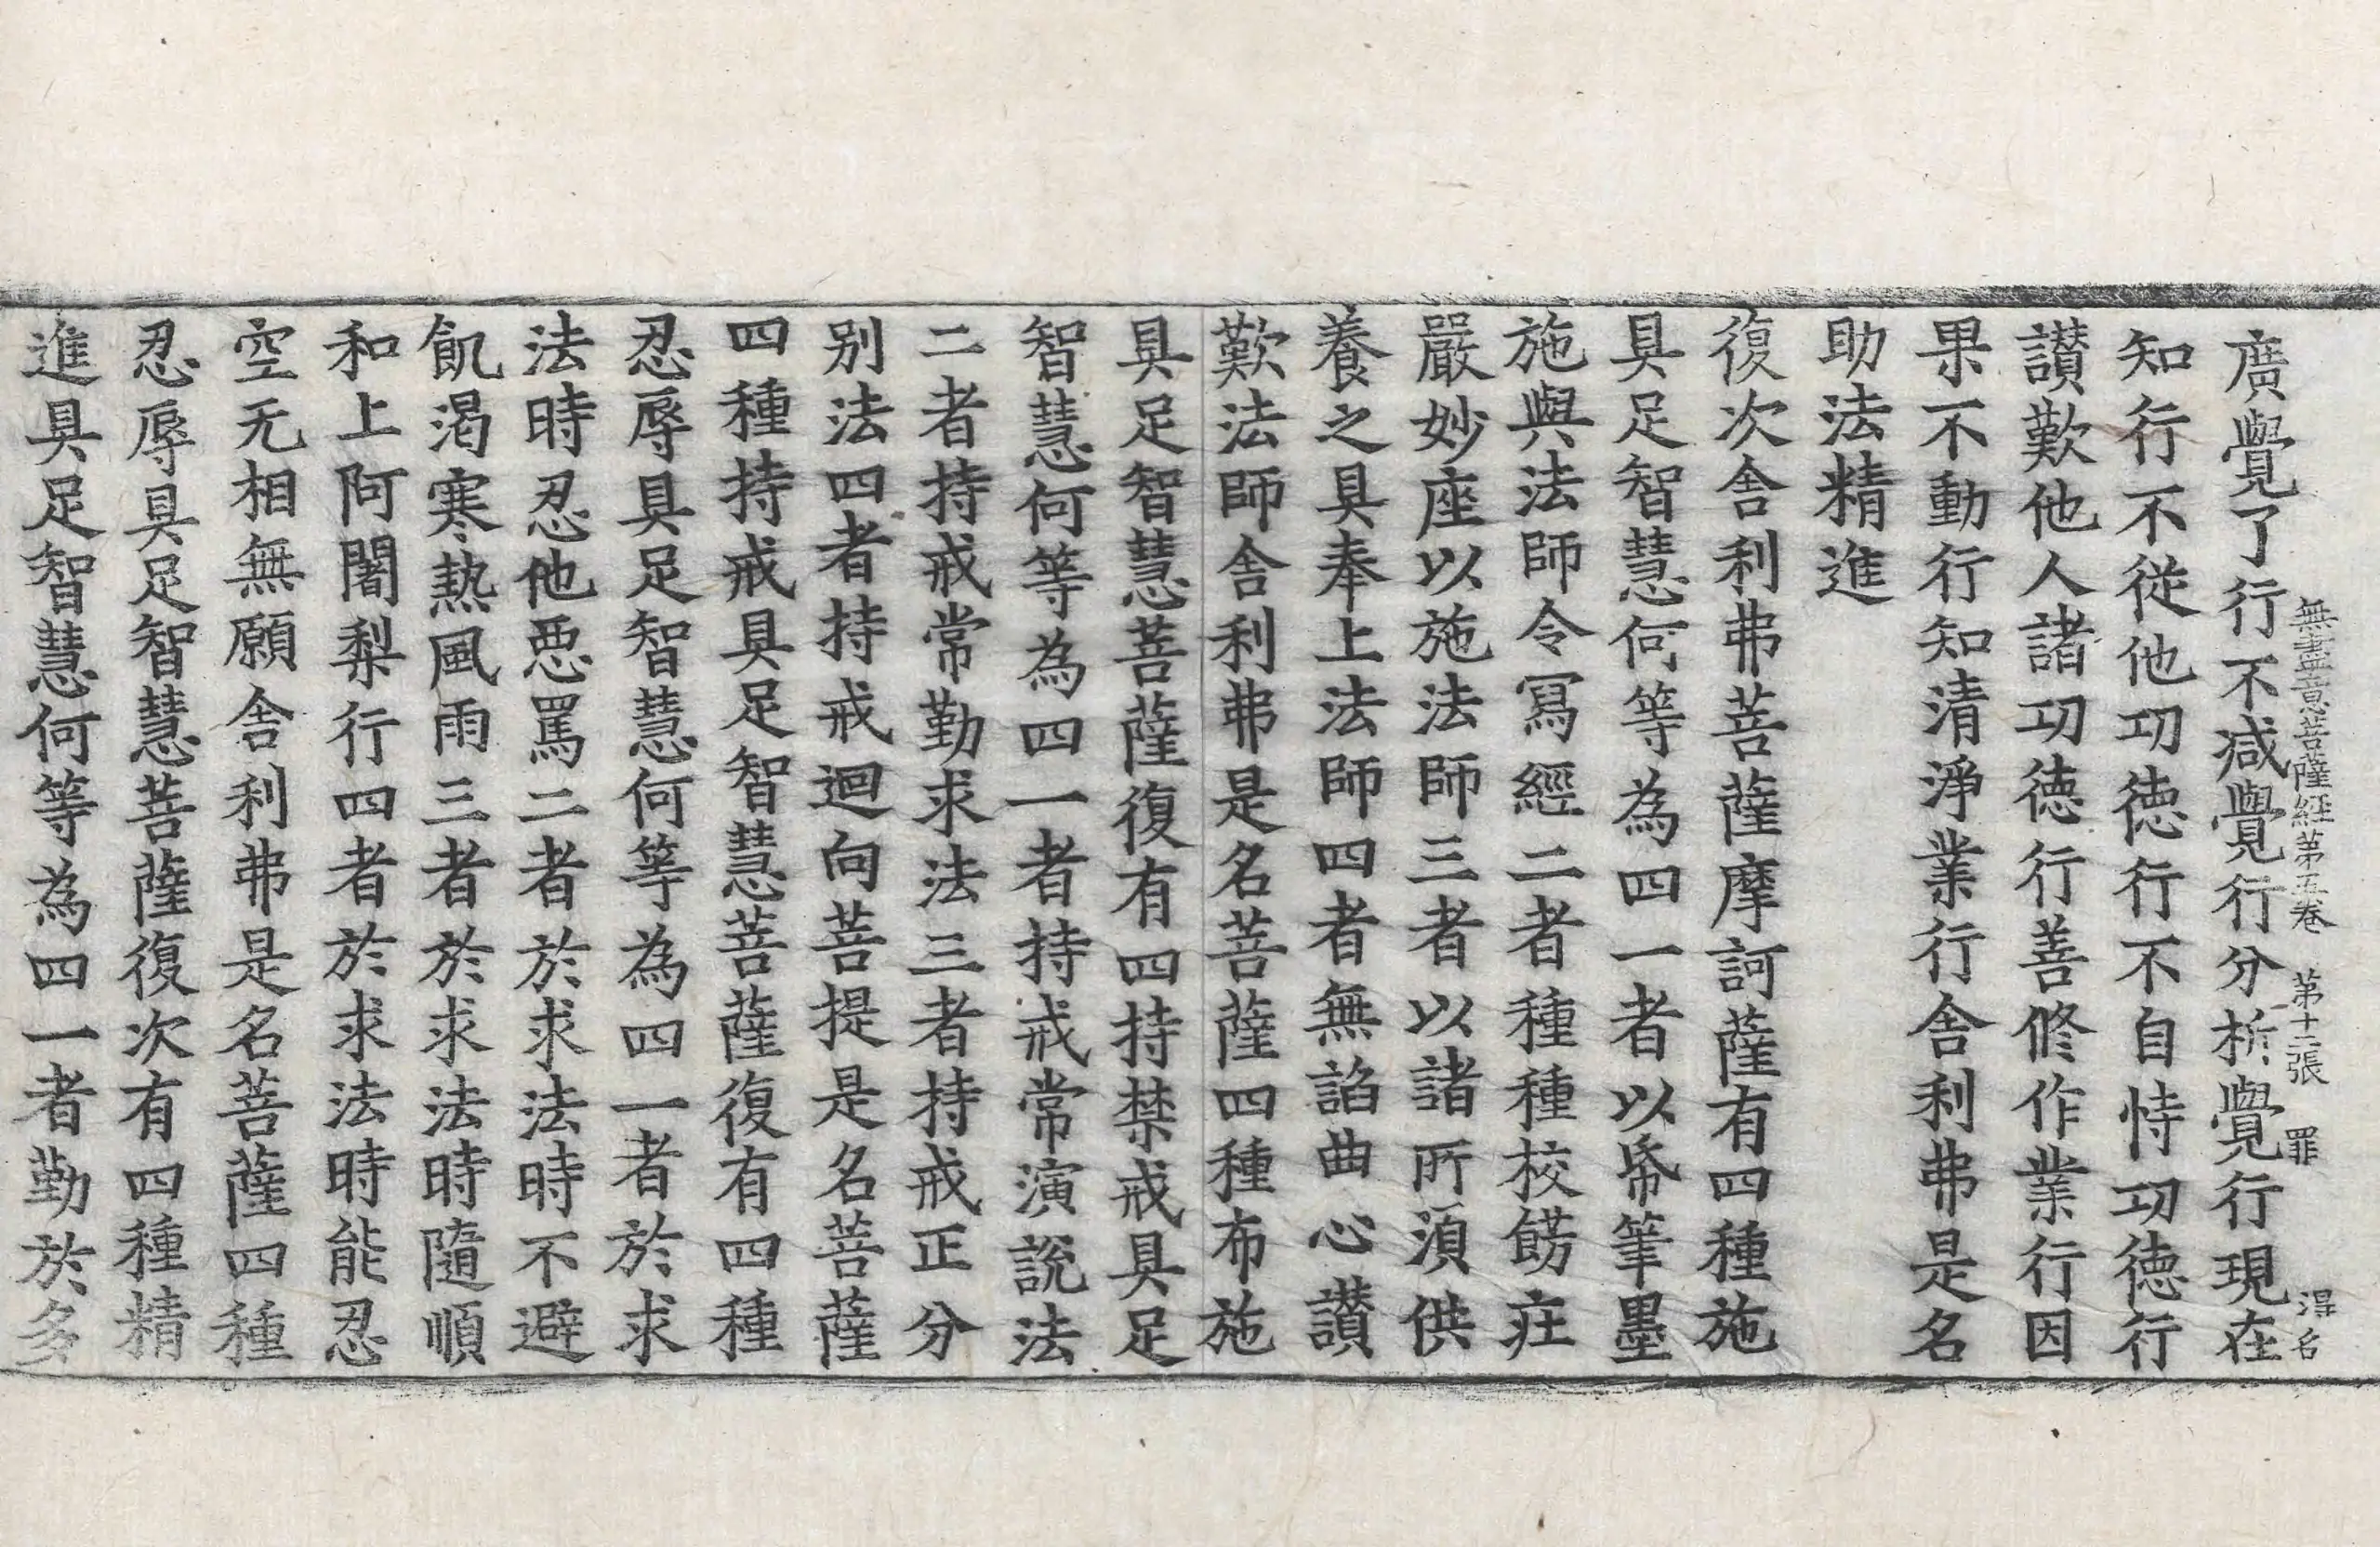 無盡意菩薩經第五卷 第十二張 罪 淂名
廣覺了行不減覺行分析覺行現在
知行不從他功德行不自恃功德行
讃歎他人諸功德行善修作業行因
果不動行知清淨業行舎利弗是名
助法精進
復次舎利弗菩薩摩訶薩有四種施
具足智慧何等為四一者以帋筆墨
施與法師令寫經二者種種校餝疘
嚴妙座以施法師三者以諸所湏供
養之具奉上法師四者無諂曲心讃
歎法師舎利弗是名菩薩四種布施
具足智慧菩薩復有四持禁戒具足
智慧何等為四一者持戒常演說法
二者持戒常勤求法三者持戒正分
别法四者持戒迴向菩提是名菩薩
四種持戒具足智慧菩薩復有四種
忍辱具足智慧何等為四一者於求
法時忍他惡罵二者於求法時不避
飢渴寒熱風雨三者於求法時隨順
和上阿闍梨行四者於求法時能忍
空无相無願舎利弗是名菩薩四種
忍辱具足智慧菩薩復次有四種精
進具足智慧何等為四一者勤於多